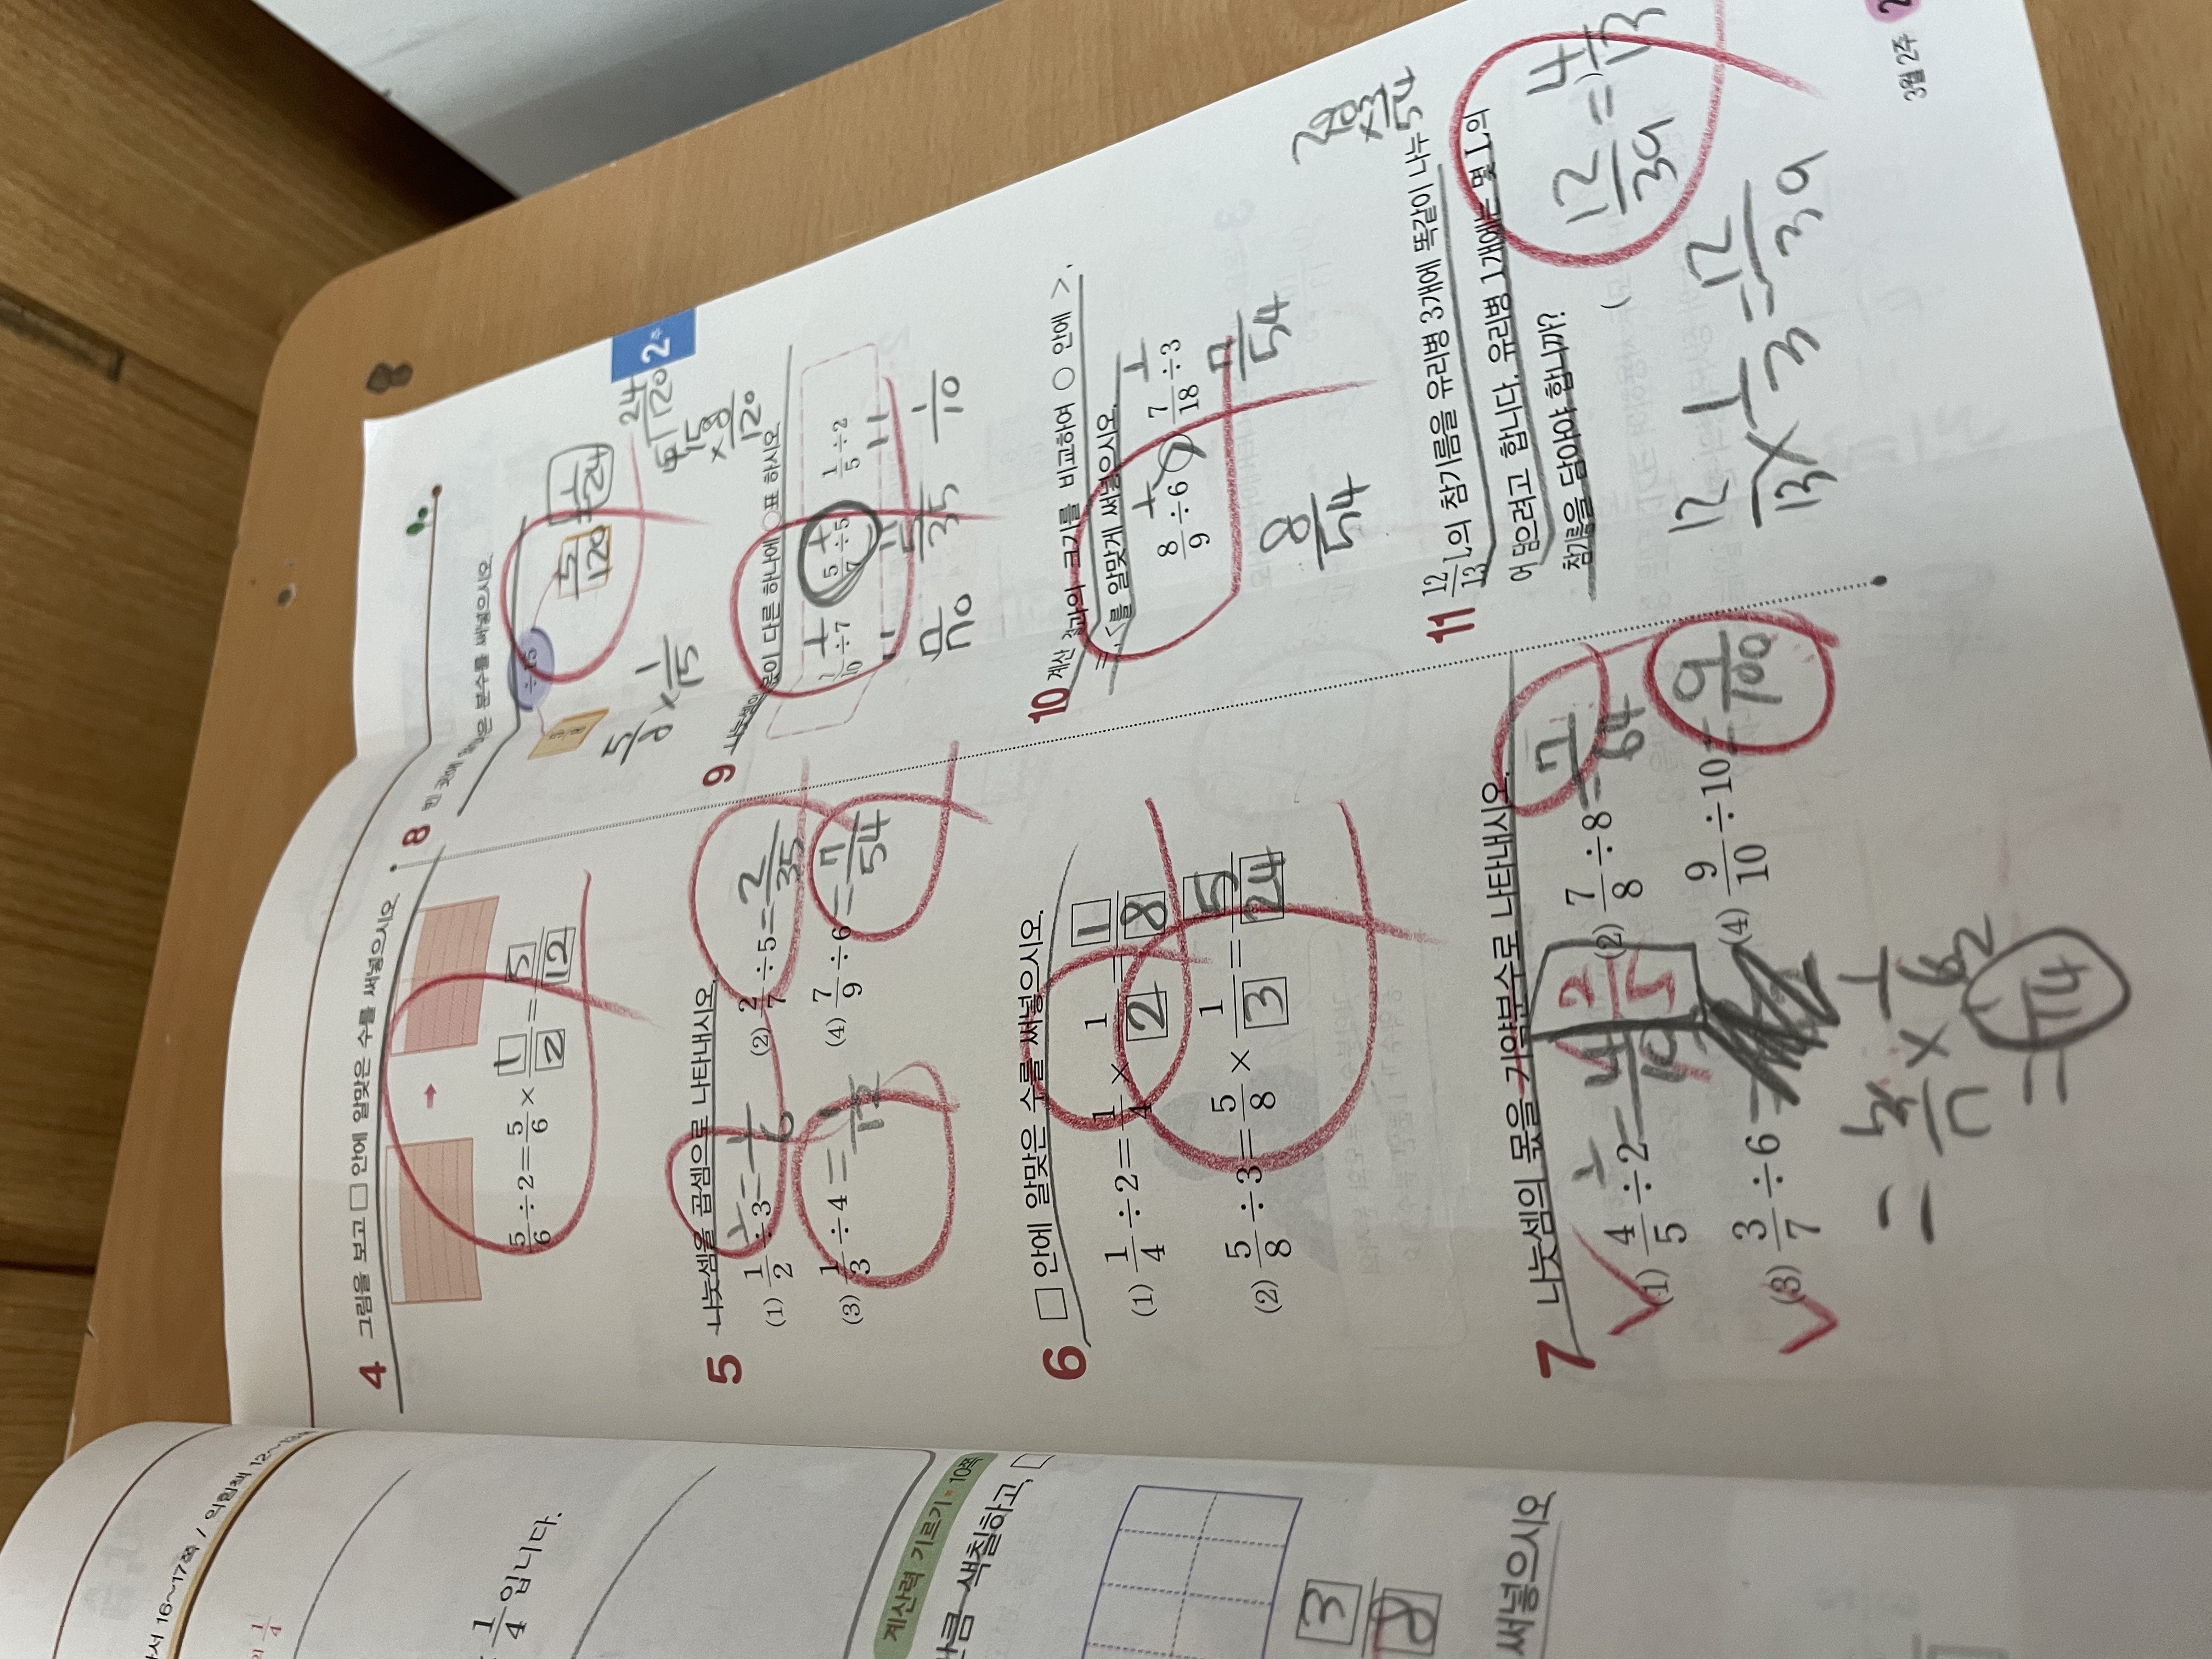 16~17쪽 / 익힘책 12~13쪽
의 1/4
1/4입니다.
계산력 기르기 • 10쪽
만큼 색칠하고, □
3/8
써넣으시오
4 그림을 보고 □ 안에 알맞은 수를 써넣으시오
5/6÷2=5/6×1/2=5/12
5 나눗셈을 곱셈으로 나타내시오
(1) 1/2÷3=1/6
(2) 2/7÷5=2/35
(3) 1/3÷4=1/12
(4) 7/9÷6=7/54
6 □ 안에 알맞은 수를 써넣으시오.
(1) 1/4÷2=1/4×1/2=1/8
(2) 5/8÷3=5/8×1/3=5/24
7 나눗셈의 몫을 기약분수로 나타내시오.
(1) 4/5÷2=4/10 2/5
(2) 7/8÷8=7/64
(3) 3/7÷6=
(4) 9/10÷10=9/100
= 3/7×1/6 2
= 1/14
2주
8 빈 곳에 알맞은 분수를 써넣으시오
÷15
5/120=1/24
5/8×1/15
24
5 120
15
×8
120
9 나눗셈의 몫이 다른 하나에 ○표 하시오
1/10÷7 5/7÷5 1/5÷2
1/70 5/35 1/10
10 계산 결과의 크기를 비교하여 ○ 안에 >,
=, <를 알맞게 써넣으시오.
8/9÷6 > 7/18÷3
8/54 7/54
11 12/13 L의 참기름을 유리병 3개에 똑같이 나누
어 담으려고 합니다. 유리병 1개에는 몇 L의
참기름을 담아야 합니까?
( 12/39=4/13 )
12/13×1/3=12/39
3월 2주